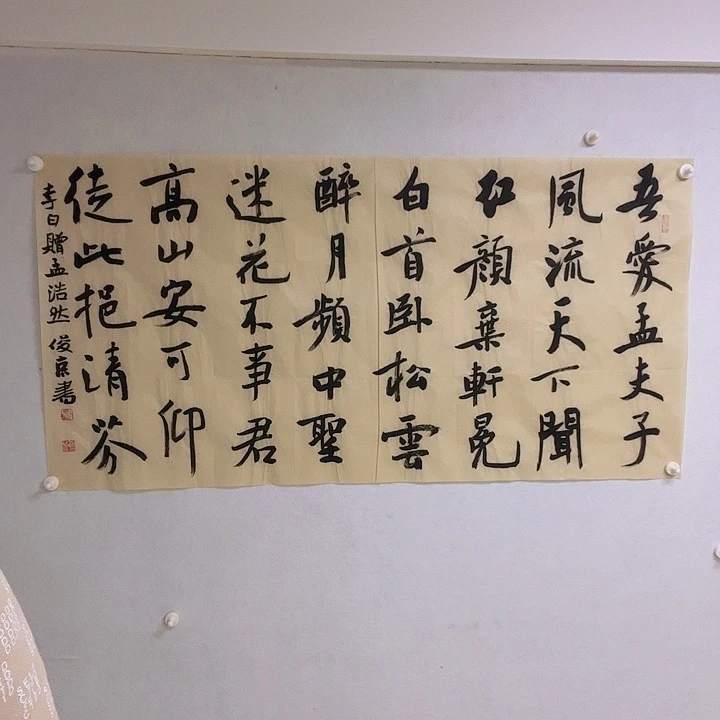 吾愛孟夫子
風流天下聞
紅顏棄軒冕
白首臥松雲
醉月頻中聖
迷花不事君
高山安可仰
徒此挹清芬
李白贈孟浩然 俊京書